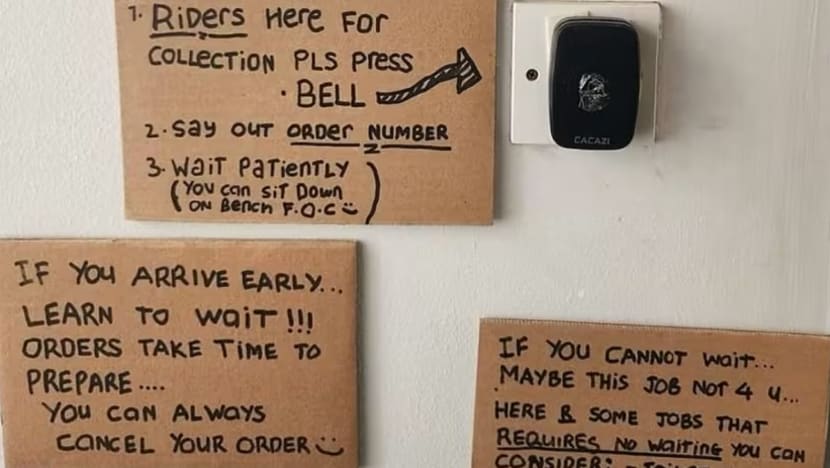 1. RIDERS HERE FOR
COLLECTION PLS PRESS
· BELL
2. SAY OUT ORDER NUMBER
3. WAIT PATIENTLY
(YOU CAN SIT DOWN
ON BENCH F.O.C)
CACAZI
IF YOU ARRIVE EARLY...
LEARN TO WAIT !!!
ORDERS TAKE TIME TO
PREPARE....
YOU CAN ALWAYS
CANCEL YOUR ORDER
IF YOU CANNOT WAIT...
MAYBE THIS JOB NOT 4 U...
HERE R SOME JOBS THAT
REQUIRES NO WAITING YOU CAN
CONSIDER: